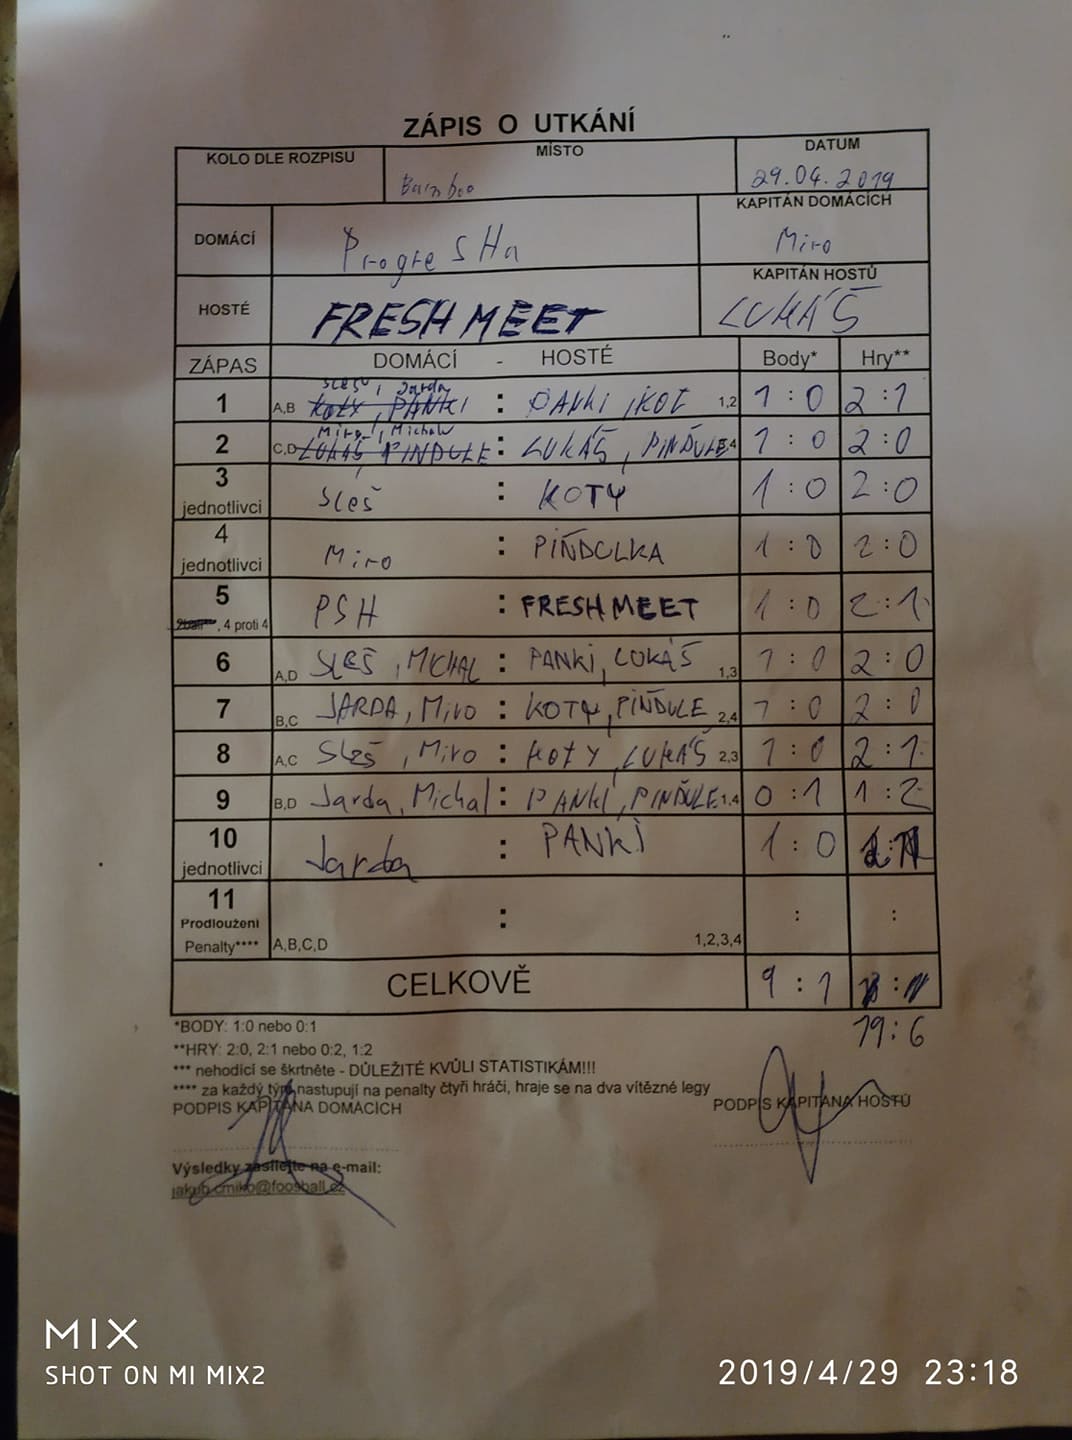 ZÁPIS O UTKÁNÍ
KOLO DLE ROZPISU MÍSTO DATUM
Bamboo 29.04.2019
DOMÁCÍ ProgreSHa KAPITÁN DOMÁCÍCH
Miro
HOSTÉ FRESH MEET KAPITÁN HOSTŮ
LUKÁŠ
ZÁPAS DOMÁCÍ - HOSTÉ Body* Hry**
Sleš, Jarda
1 A,B KOTY, PANKI : PANKI, KOT 1,2 1:0 2:1
Miro, Michal
2 C,D LUKÁŠ PINDULE : LUKÁŠ, PINĎULE 4 1:0 2:0
3 jednotlivci Sleš : KOTY 1:0 2:0
4 jednotlivci Miro : PIŇDULKA 1:0 2:0
5 PSH : FRESH MEET 1:0 2:1
2ball**, 4 proti 4
6 A,D SLEŠ, MICHAL : PANKI, LUKÁŠ 1,3 1:0 2:0
7 B,C JARDA, Miro : KOTY, PIŇDULE 2,4 1:0 2:0
8 A,C SLEŠ, Miro : KOTY, LUKÁŠ 2,3 1:0 2:1
9 B,D Jarda, Michal : PANKI, PINĎULE 1,4 0:1 1:2
10 jednotlivci Jarda : PANKI 1:0
11 : : :
Prodloužení
Penalty**** A,B,C,D 1,2,3,4
CELKOVĚ 9:1
19:6
*BODY: 1:0 nebo 0:1
**HRY: 2:0, 2:1 nebo 0:2, 1:2
*** nehodící se škrtněte - DŮLEŽITÉ KVŮLI STATISTIKÁM!!!
**** za každý tým nastupují na penalty čtyři hráči, hraje se na dva vítězné legy
PODPIS KAPITÁNA DOMÁCÍCH PODPIS KAPITÁNA HOSTŮ
Výsledky zasílejte na e-mail:
jakub.cmiko@foosball.cz
MIX
SHOT ON MI MIX2 2019/4/29 23:18